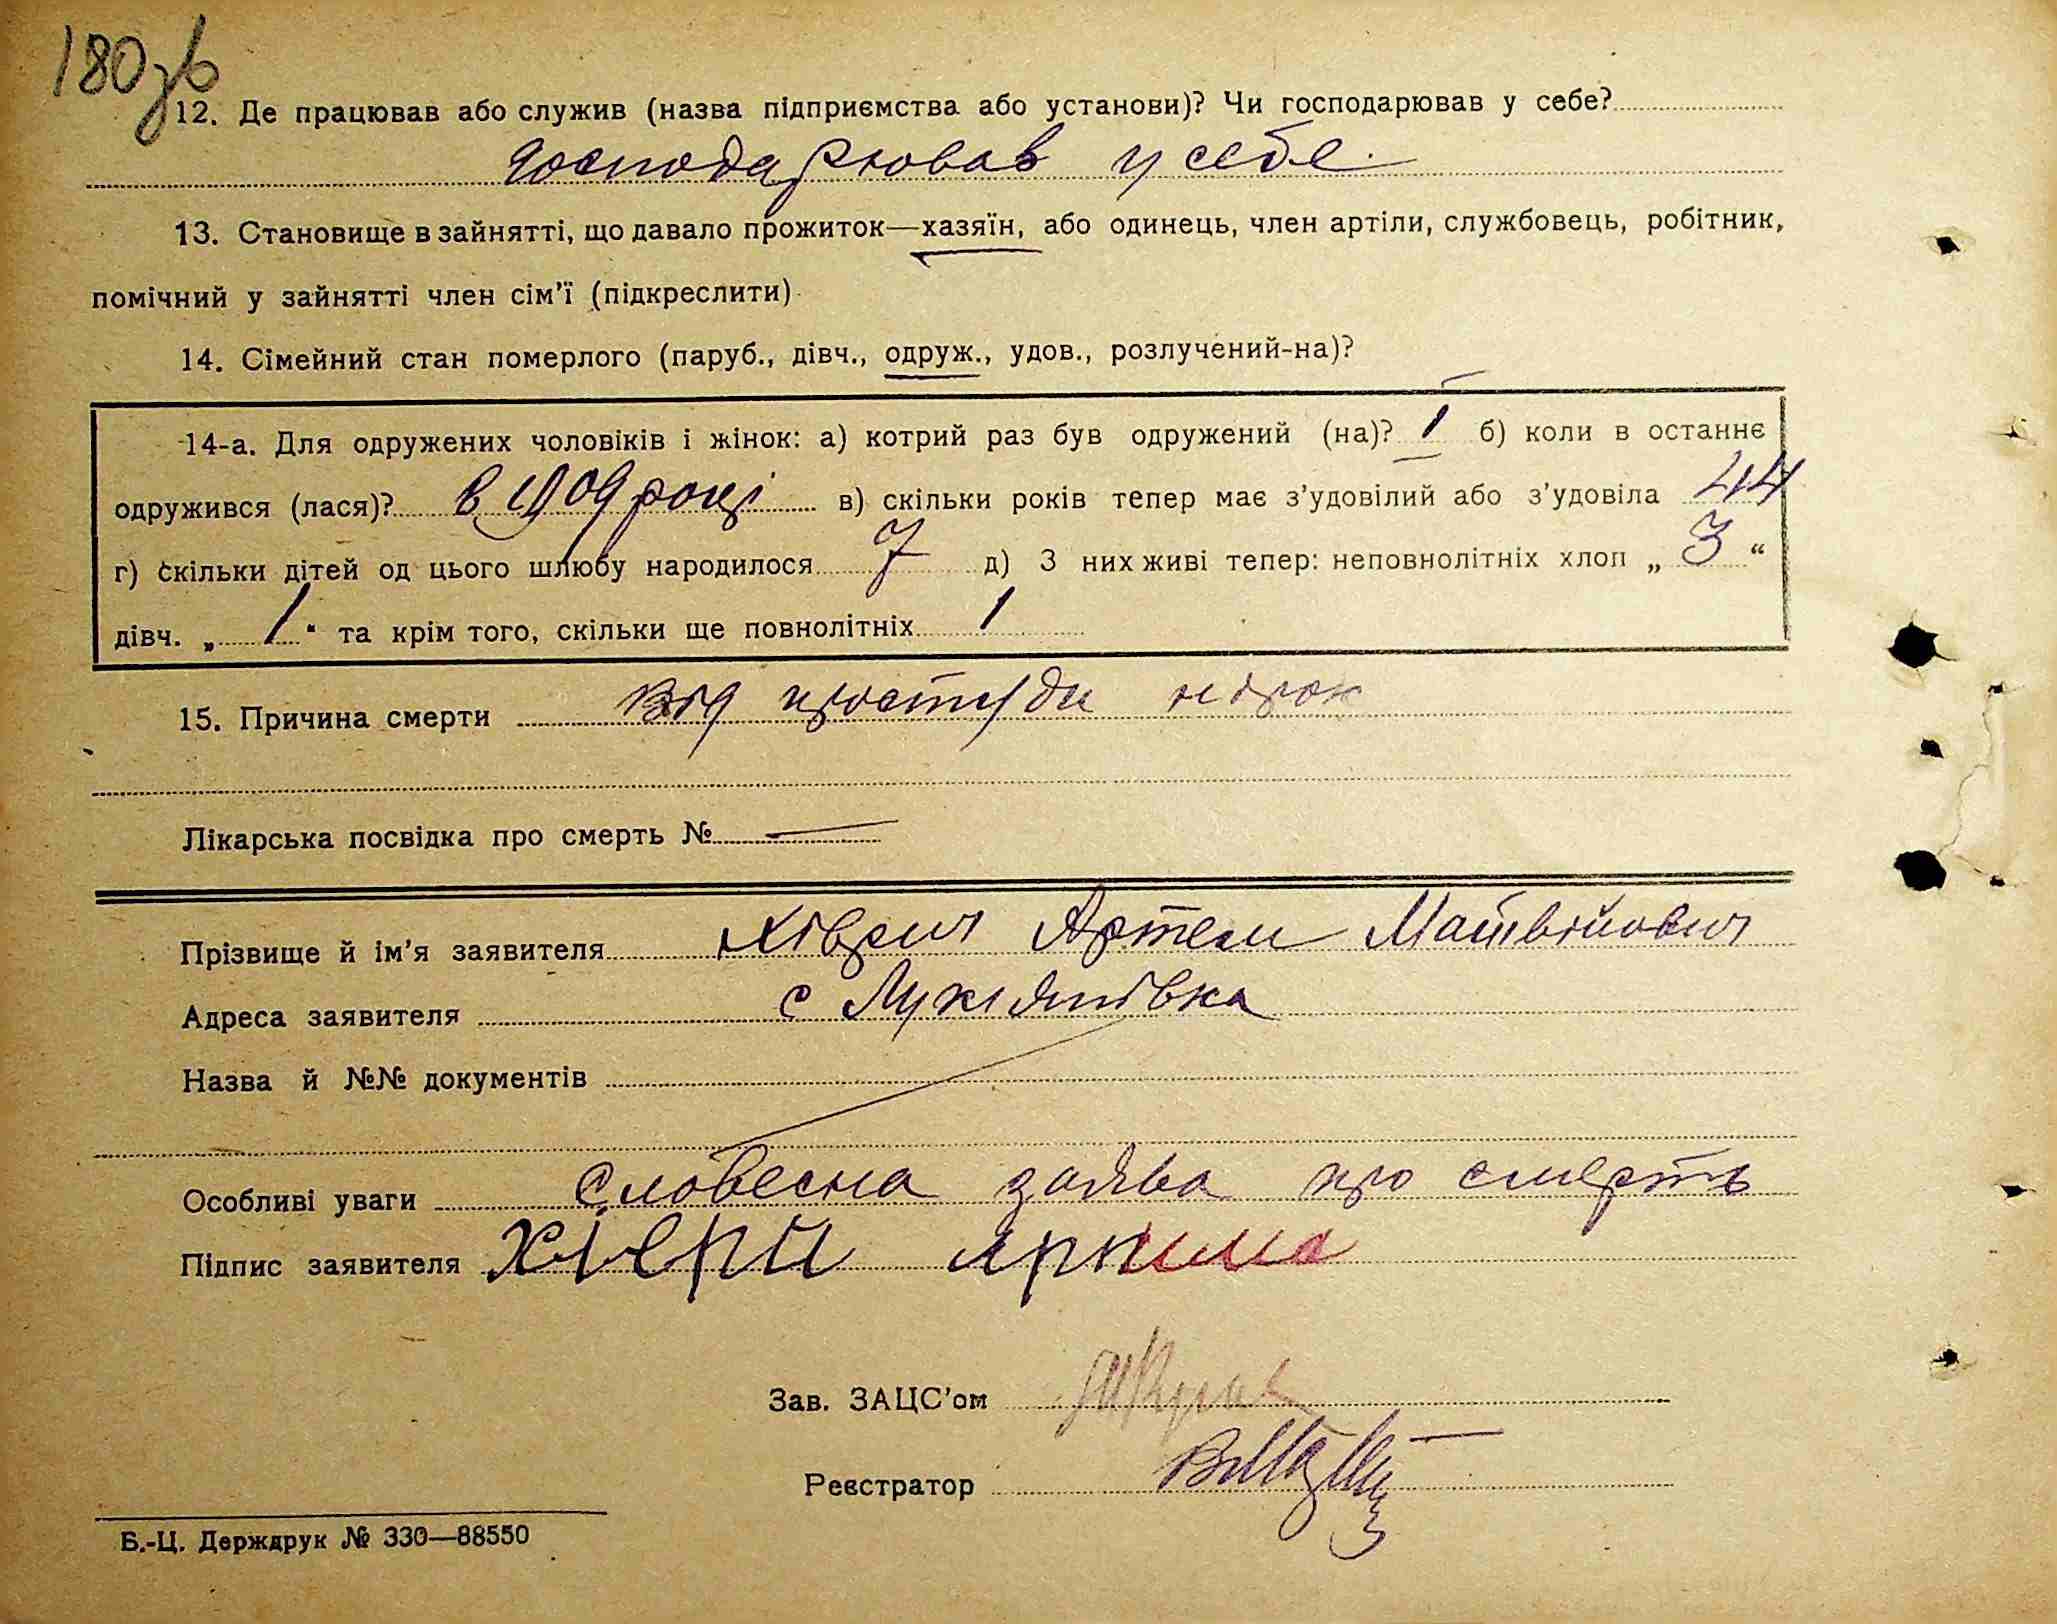 180зв
12. Де працював або служив (назва підприємства або установи)? Чи господарював у себе?
господарював у себе.
13. Становище в зайнятті, що давало прожиток—хазяїн, або одинець, член артіли, службовець, робітник,
помічний у зайнятті член сім'ї (підкреслити)
14. Сімейний стан померлого (паруб., дівч., одруж., удов., розлучений-на)?
14-а. Для одружених чоловіків і жінок: а) котрий раз був одружений (на)? 1 б) коли в останнє
одружився (лася)? в 1909 році в) скільки років тепер має з'удовілий або з'удовіла 44
г) скільки дітей од цього шлюбу народилося 7 д) З них живі тепер: неповнолітніх хлоп „ 3 “
дівч. „ 1 “ та крім того, скільки ще повнолітніх 1
15. Причина смерти від простуди нирок
Лікарська посвідка про смерть № —
Прізвище й ім'я заявителя Хіврич Артем Матвійович
Адреса заявителя с Лукянівка
Назва й №№ документів
Особливі уваги Словесна заява про смерть
Підпис заявителя
Зав. ЗАЦС'ом
Реєстратор
Б.-Ц. Держдрук № 330—88550